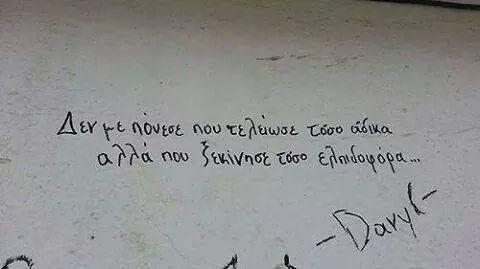 Δεν με πόνεσε που τελείωσε τόσο άδικα
αλλά που ξεκίνησε τόσο ελπιδοφόρα...